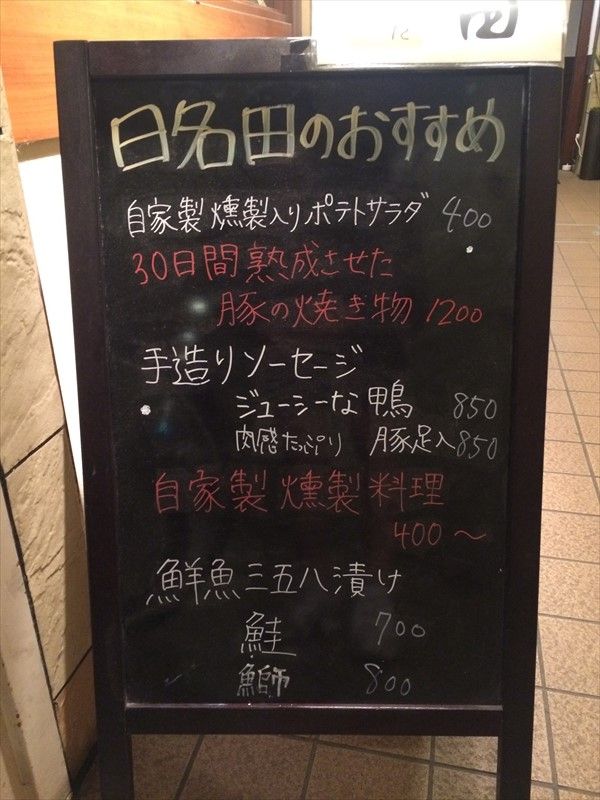 日名田のおすすめ
自家製燻製入りポテトサラダ 400
30日間熟成させた
豚の焼き物 1200
手造りソーセージ
ジューシーな 鴨 850
肉感たっぷり 豚足入 850
自家製燻製料理
400〜
鮮魚三五八漬け
鮭 700
鰤 800